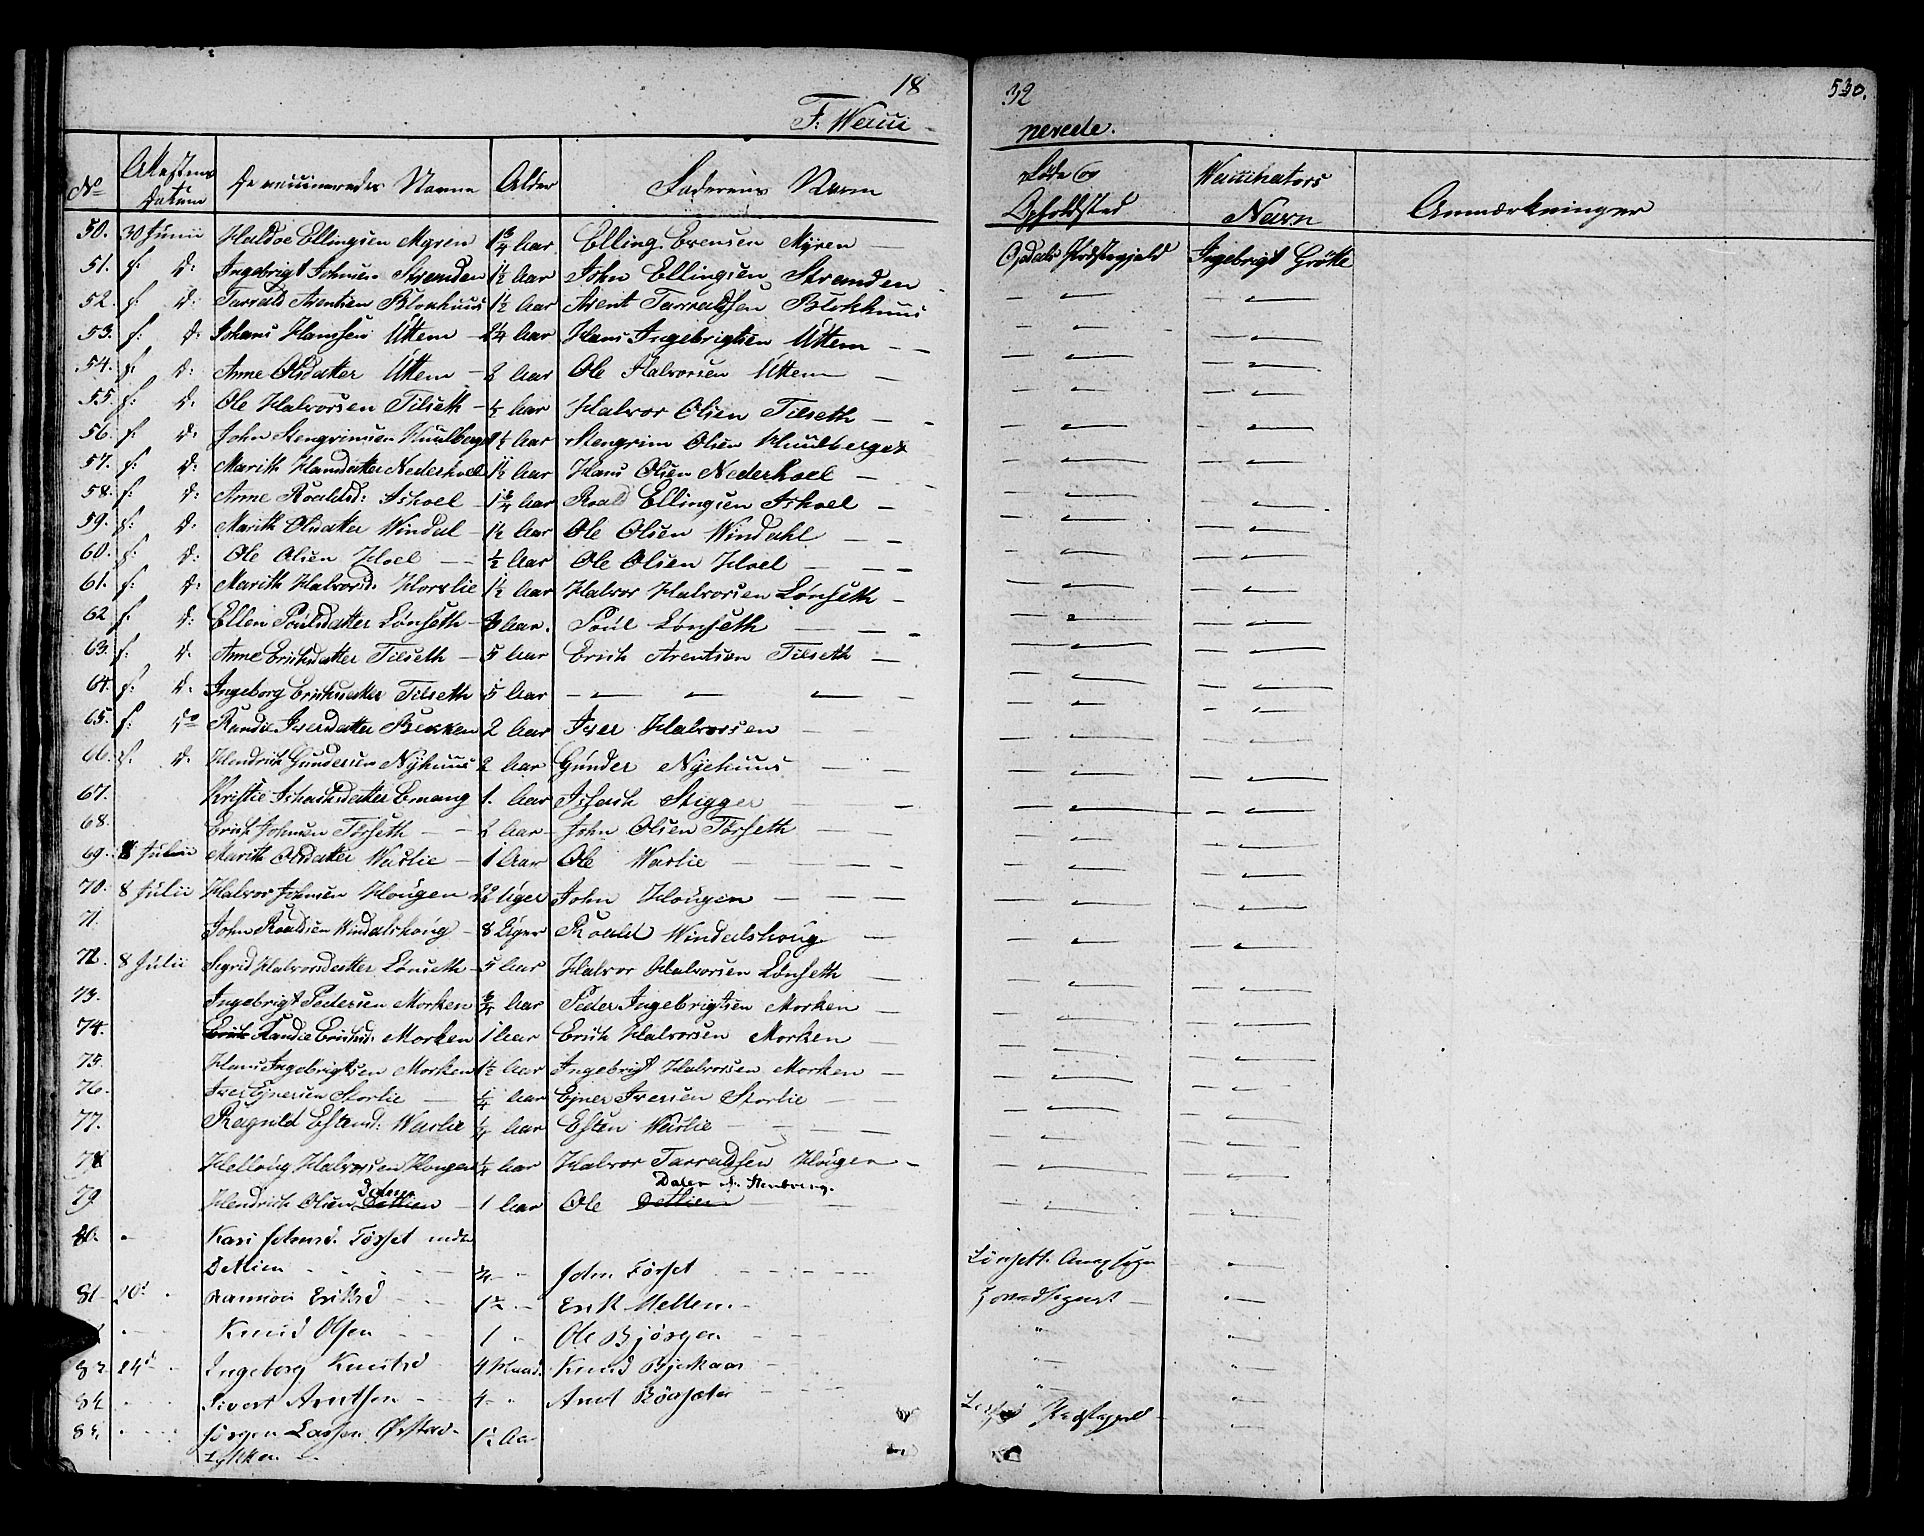 18
32
530.
F. Wacci-
nerede.
No Attestens Datum De vaccineredes Navne Alder Faderens Navn Opholdsted Waccinators Navn Anmærkninger
50. 30 Junii Haldoe Ellingsen Myren 1¾ Aar Elling Evensen Myren — Opdals Præstegjeld Ingebrigt Grøtte
51. f: d: Ingebrigt Johnsen Stranden 1½ Aar John Ellingsen Stranden — —
52. f: d: Tarrald Arentsen Blokhuus 1½ Aar Arent Tarraldsen Blokhuus — —
53. f: d: Johans Hansen Uttem — 2¼ Aar Hans Ingebrigtsen Uttem — —
54. f: d: Anne Olsdatter Uttem — 2 Aar Ole Halvorsen Uttem — —
55. f: d: Ole Halvorsen Tilseth — ½ Aar Halvor Olsen Tilseth — —
56. f: d: John Stengrimsen Huulberget ½ Aar Stengrim Olsen Huulberget — —
57. f: d: Marith Hansdatter Nederhoel 1½ Aar Hans Olsen Nederhoel — —
58. f: d: Anne Roaldsd: Ishoel — 1¾ Aar Roald Ellingsen Ishoel — —
59. f: d: Marith Olsdatter Windal — 1½ Aar Ole Olsen Windahl — —
60. f: d: Ole Olsen Hoel — ½ Aar Ole Olsen Hoel — —
61. f: d: Marith Halvorsd: Horvlie 1½ Aar Halvor Halvorsen Lønseth — —
62 f: d: Ellen Poulsdatter Lønseth — 3 Aar. Poul Lønseth — —
63. f: d. Anne Erichsdatter Tilseth — 5 Aar Erich Arentsen Tilseth — —
64. f. d. Ingeborg Erichsdatter Tilseth 5 Aar — — —
65. f: do Randie Iversdatter Bekken 2 Aar Iver Halvorsen — —
66. f. d. Hendrich Gundersen Nyhuus 2 Aar Gunder Nyehuus — —
67. Kristie Ishachsdatter Emaug 1. Aar Ishach Stigger — —
68. Erich Johnsen Tørseth — 2 Aar John Olsen Tørseth — —
69. 8 Julii Marith Olsdatter Warlie — 1 Aar Ole Warlie — —
70. 8 Julii Halvor Johnsen Hougen — 22 Uger John Hougen — —
71. John Roaldsen Windalshoug — 8 Uger Roald Windalshoug — —
72. 8 Julii Sigrid Halvorsdatter Lønseth — 5 Aar Halvor Halvorsen Lønseth — —
73. Ingebrigt Pedersen Morken ¾ Aar Peder Ingebrigtsen Morken — —
74. Erich Randie Erichsd: Morken 1 Aar Erich Halvorsen Morken — —
75. Hans Ingebrigtsen Morken 1½ Aar Ingebrigt Halvorsen Morken — —
76. Iver Ejnersen Storlie — ¼ Aar Ejner Iversen Storlie — —
77. Ragnild Estensd: Warlie ¼ Aar Esten Warlie — —
78 Helloug Halvorsen Hougen ¼ Aar Halvor Tarraldsen Hougen — —
79 Hendrich Olsen Detlien — 1 Aar Ole Detlien — —
80. Kari Johnsd. Tørset
Detlien ¾ — John Tørset Lønset Annexsogn —
81 20d Eriksd 1½ — Erik Mellem —
Knud Olsen 1 Ole Bjørgen —
83. 24d Ingeborg Knutsd 4 Maand. Knud Bjerkaas —
84 Sivert Arntsen 4 — Arnt Bøesæter —
85. Jørgen Larsen
Lykkia 1½ Aar